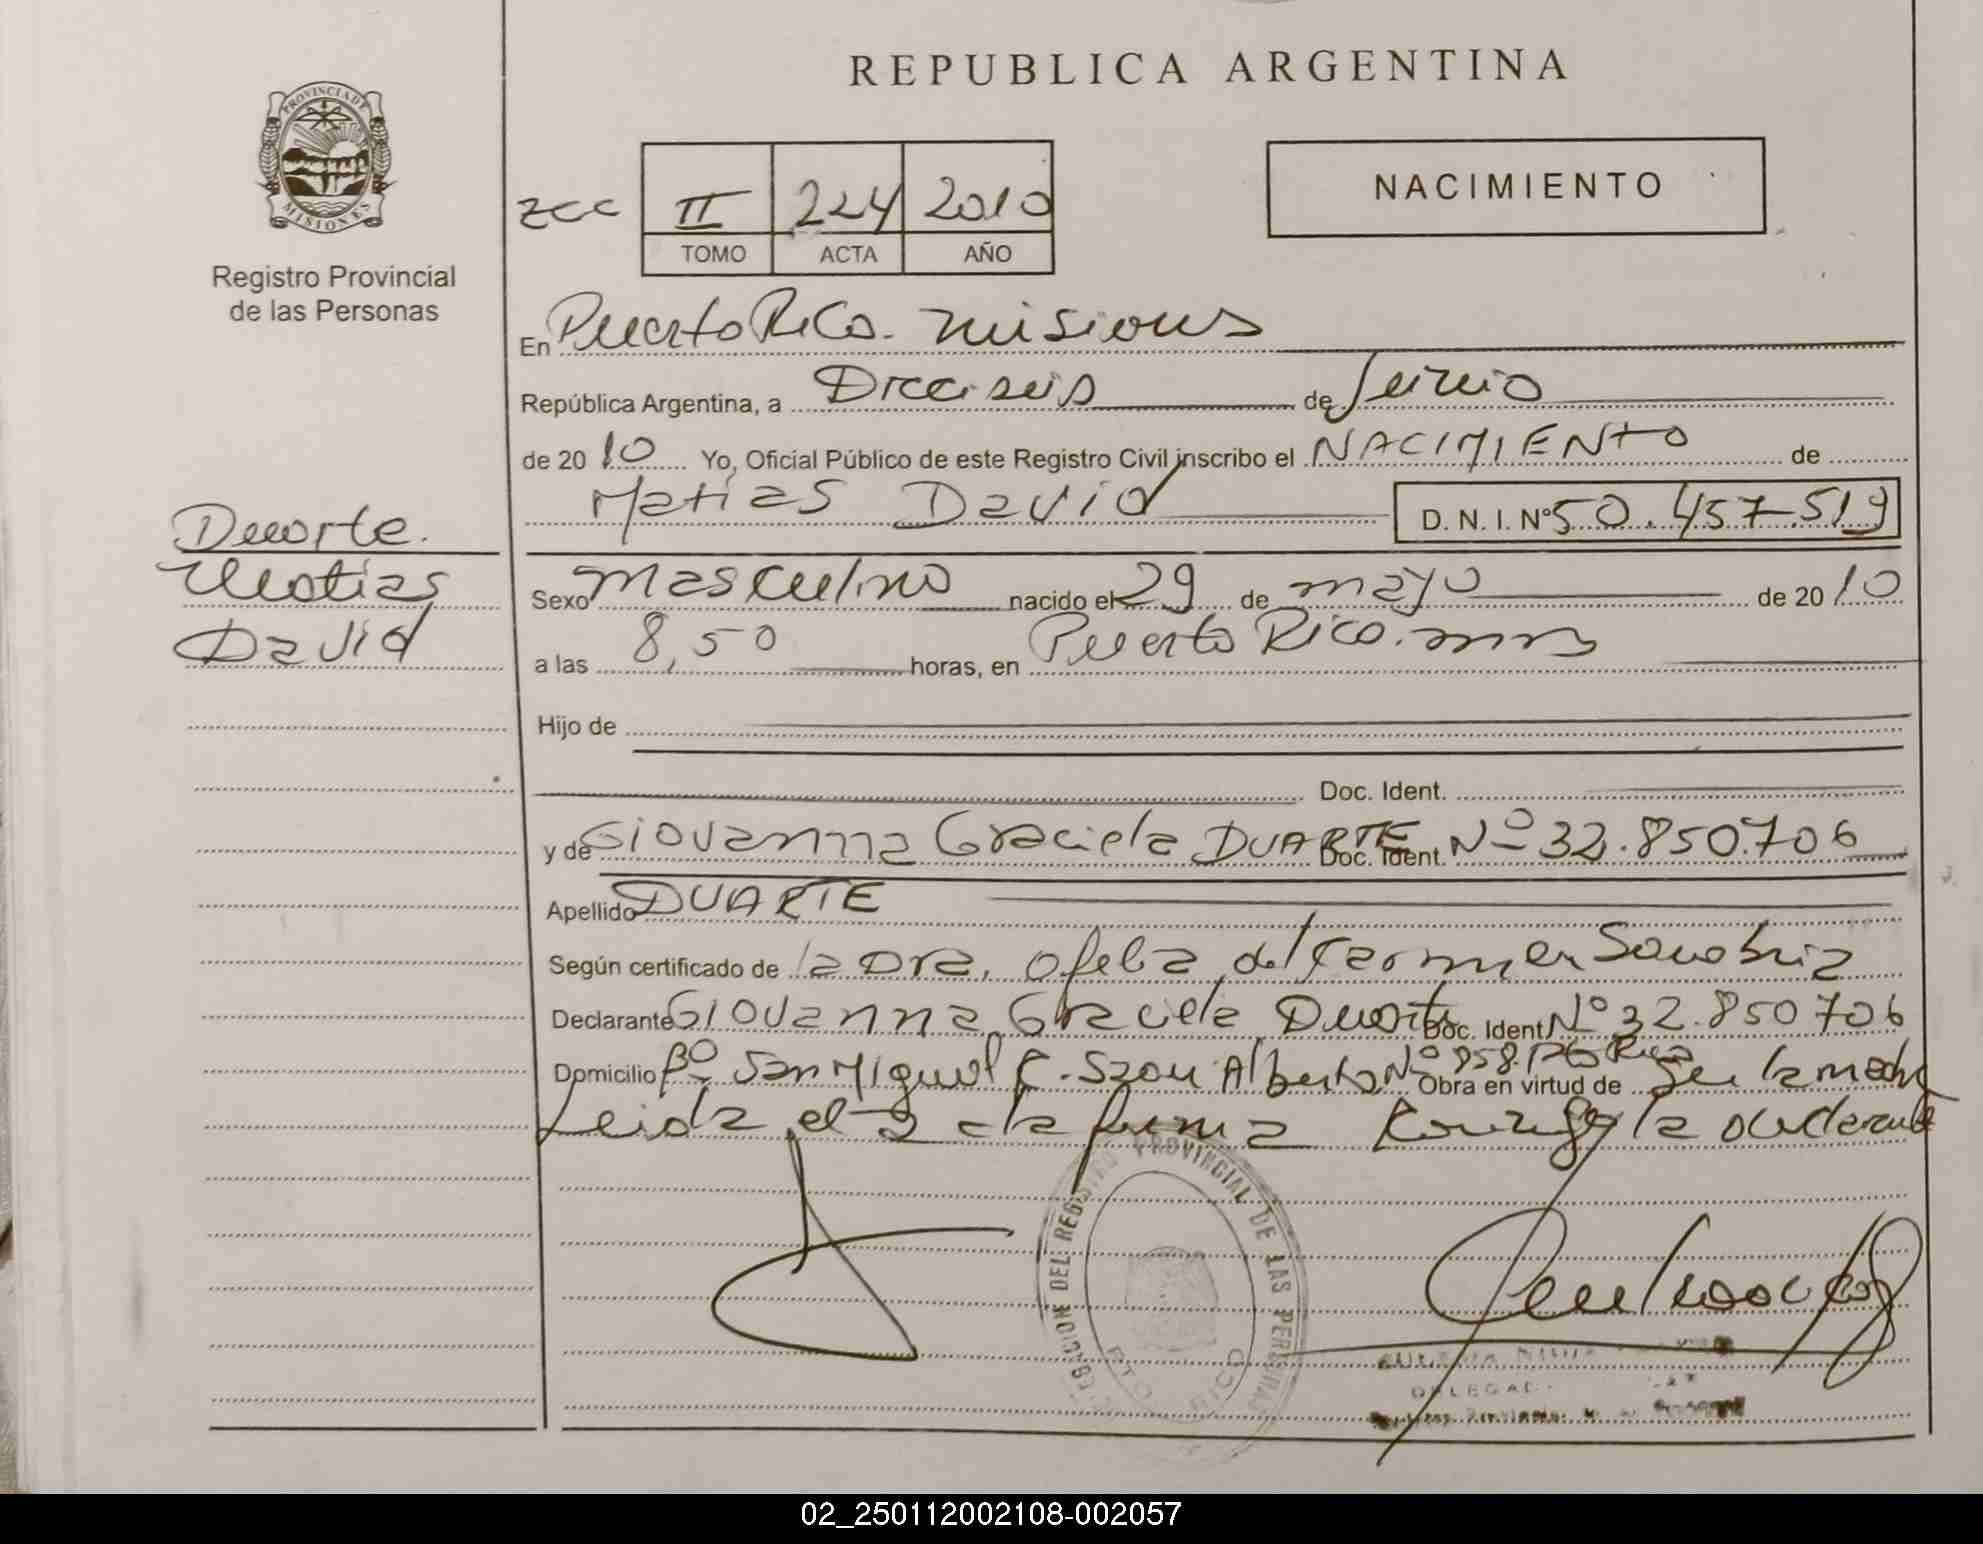 REPUBLICA ARGENTINA
PROVINCIA DE
MISIONES
Registro Provincial
de las Personas
ZCC II 224 2010
TOMO ACTA AÑO
NACIMIENTO
En Puerto Rico. Misiones
República Argentina, a Dieciseis de Junio
de 2010 Yo, Oficial Público de este Registro Civil inscribo el NACIMIENTO de
Matías David D. N. I. Nº 50.457.519
Duarte.
Matías
David
Sexo Masculino nacido el 29 de mayo de 2010
a las 8,50 horas, en Puerto Rico. Mnes
Hijo de
Doc. Ident.
y de Giovanna Graciela DUARTE Doc. Ident. Nº 32.850.706
Apellido DUARTE
Según certificado de la Dra. Ofelia del Carmen Sanabria
Declarante Giovanna Graciela Duarte Doc. Ident Nº 32.850706
Domicilio Bº San Miguel C. Alberto Nº 958. Pto Rico Obra en virtud de Ser la madre
Leida el acta firma la declarante
DEL REGISTRO PROVINCIAL DE LAS PERSONAS
PTO RICO
02_250112002108-002057